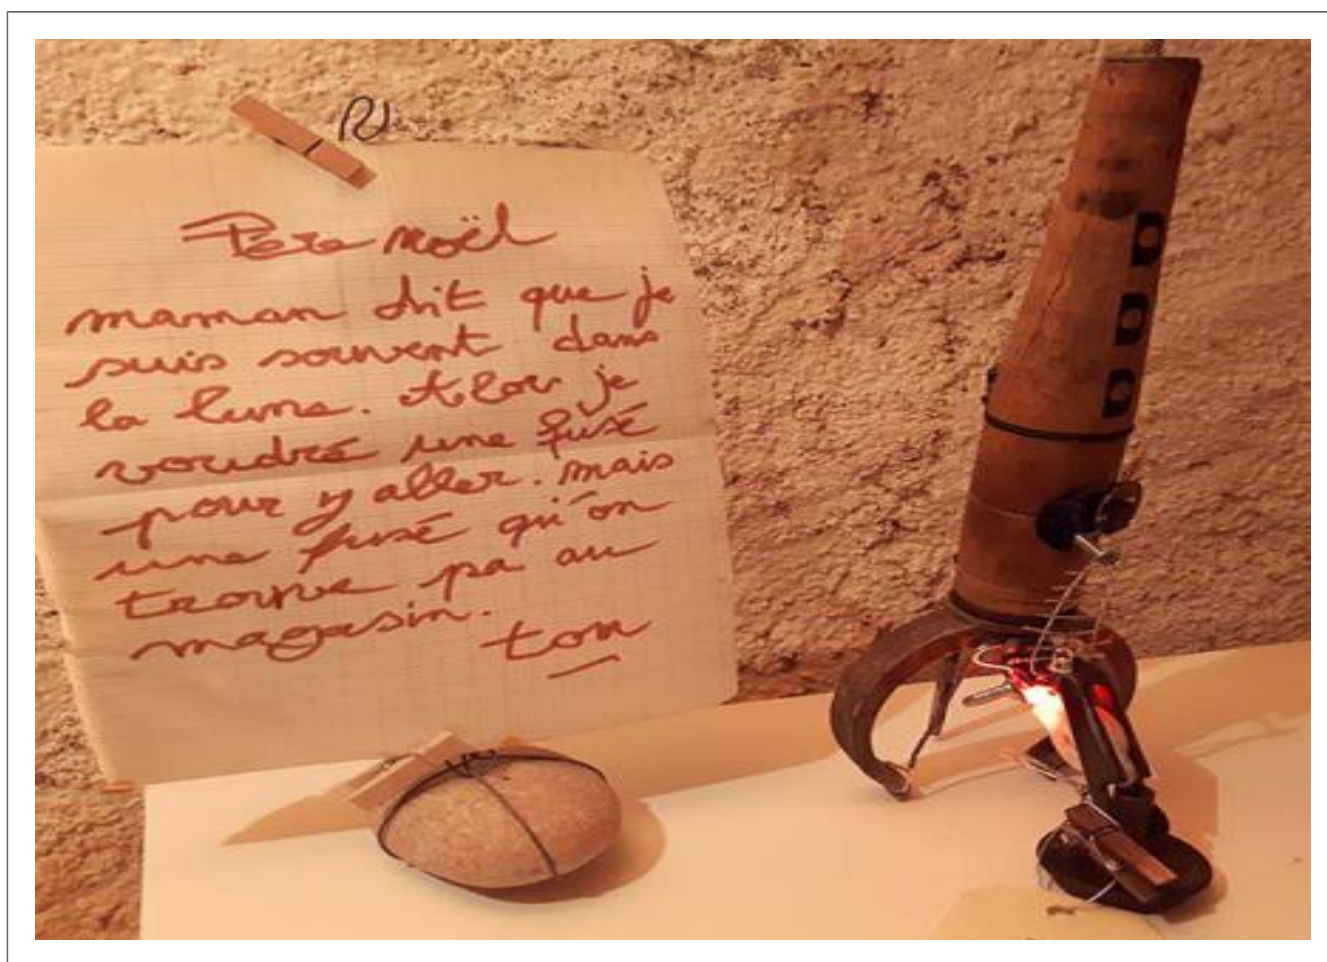 Père Noël
maman dit que je
suis souvent dans
la lune. Alor je
voudré une fusé
pour y aller. mais
une fusé qu'on
trouve pa au
magasin.
tom